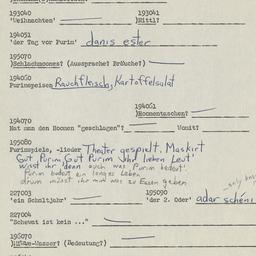 193040 193041
'Weihnachten' )Nittl?
194051
'der Tag vor Purim' danis ester
195070
)Schlachmones? (Aussprache? Bräuche?)
194060
Purimspeisen Rauchfleisch, Kartoffelsalat
194061
)Homentaschen?
194070
Hat man den Homen "geschlagen"? Womit?
195080
Purimspiele, -lieder Theater gespielt. Maskirt
Gut Purim, Gut Purim ihr lieben Leut'
Wisst ihr denn auch was Purim bedeut'
Purim bedeut ein langes Leben
drum müsst ihr mir was zu Essen geben
227003 195090 only
'ein Schuljahr' 'der 2. Oder' adar schéni
227004
"Schewat ist kein ..."
196070
-Wasser? (Bedeutung?)